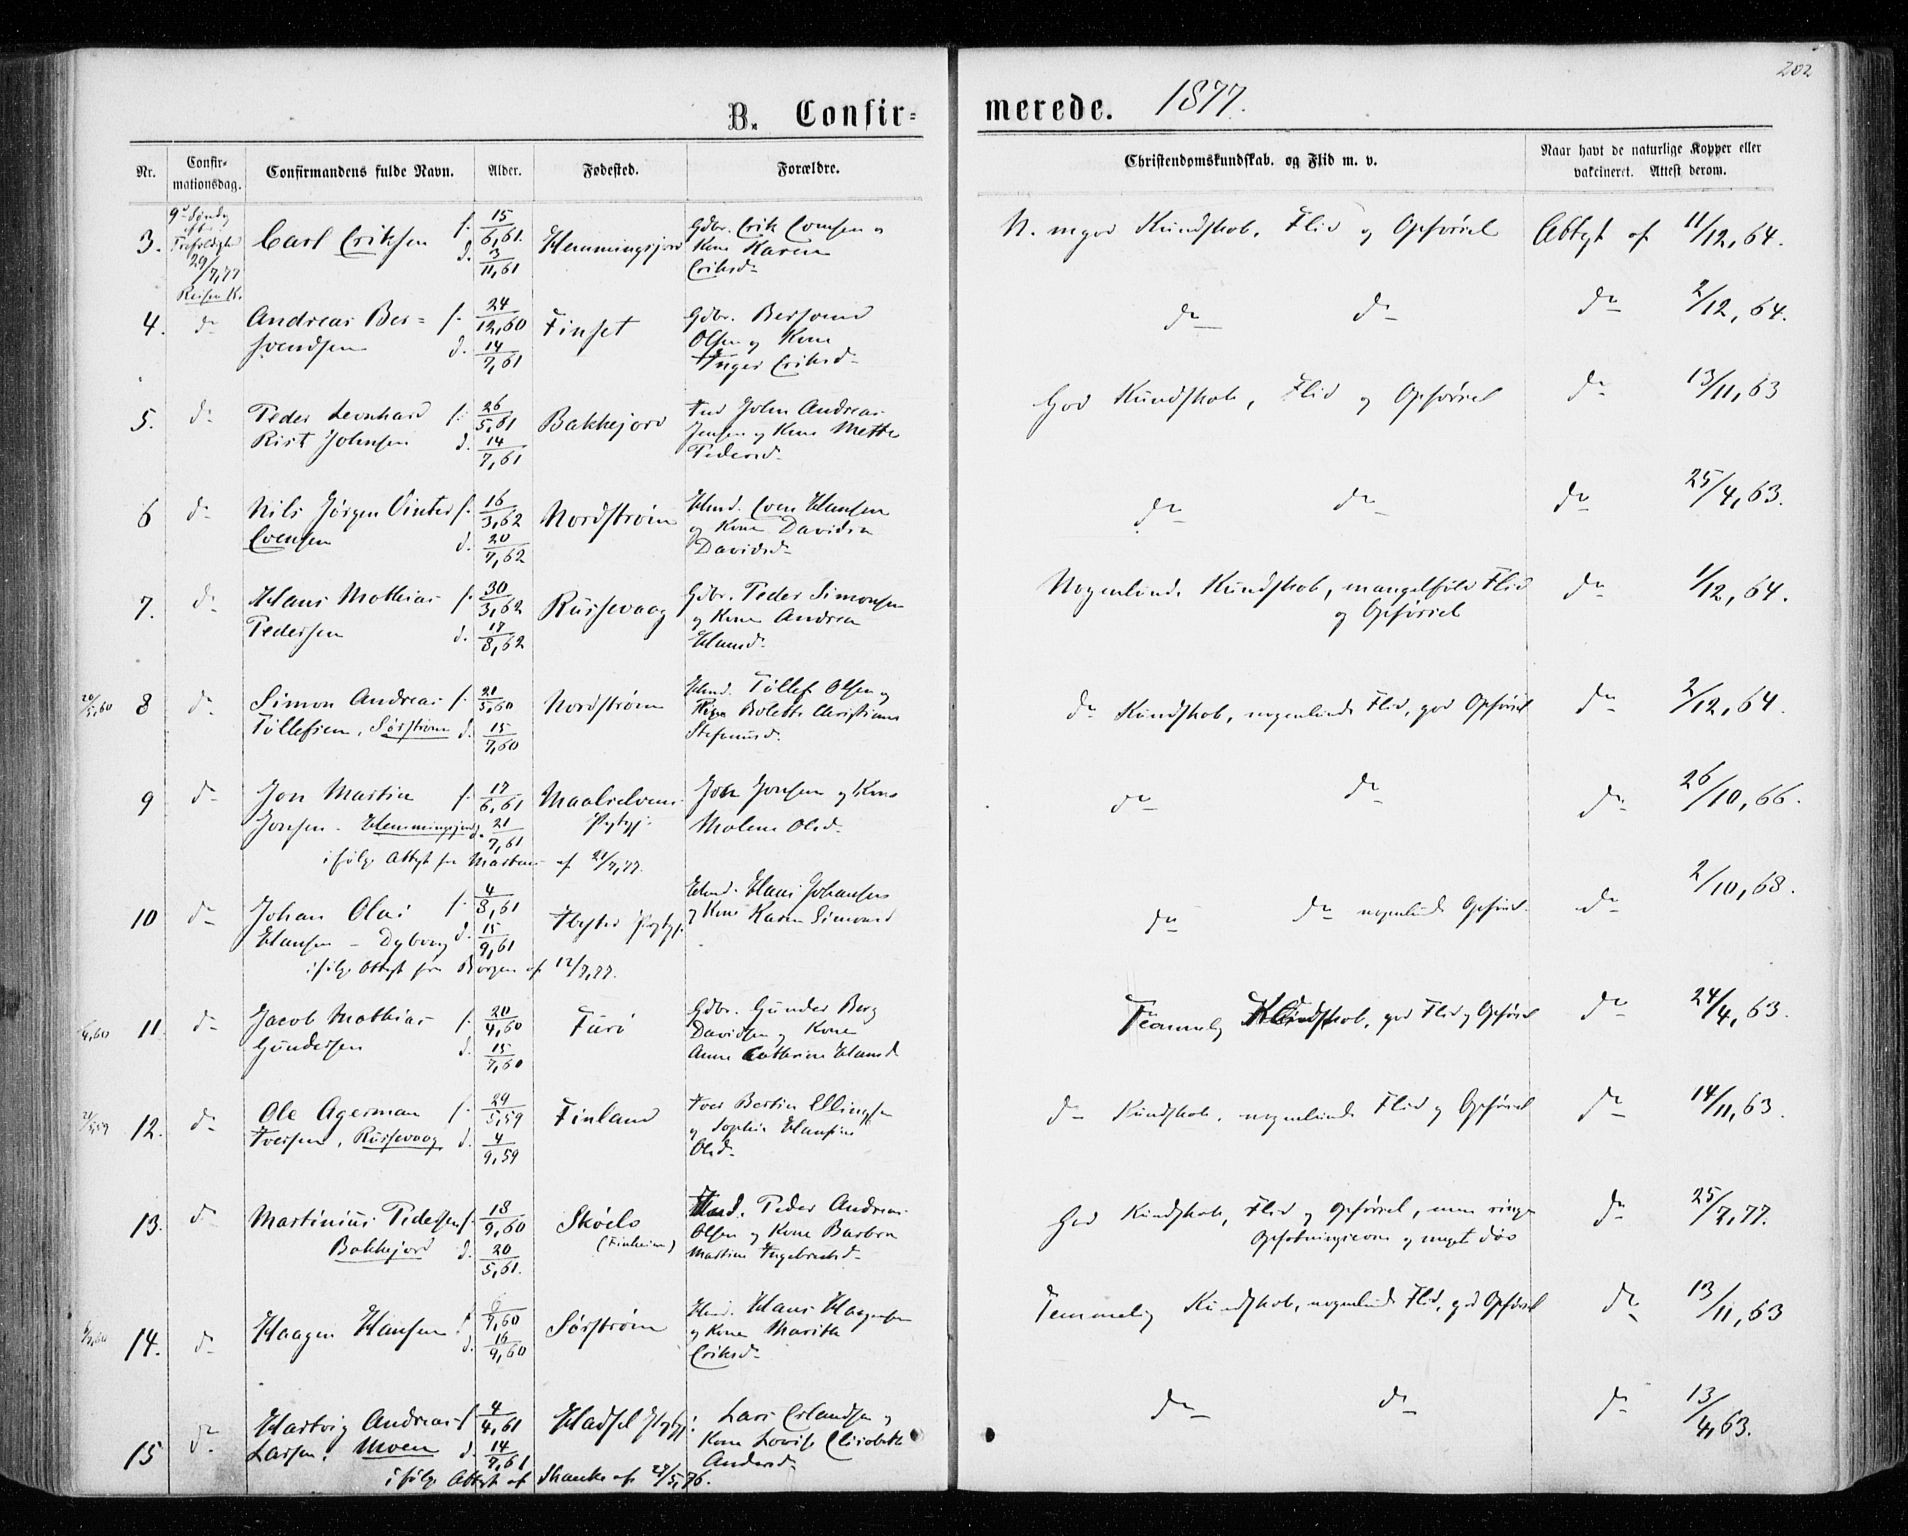 202
B. Confir-
merede. 1877.
Nr.
Confir-
mationsdag.
Confirmandens fulde Navn.
Alder.
Fødested.
Forældre.
Christendomskundskab. og Flid m. v.
Naar havt de naturlige Kopper eller
vakcineret. Attest derom.
3.
9de Søndag
eft.
Trefoldighed
29/7,77
Reisen K.
Carl Eriksen
f. 15/6,61.
d. 3/11,61
Hemmingsjord
Gdbr. Erik Evensen og
Kone Karen
Eriksd.
N. mgod Kundskab, Flid og Opførsel
Attest af 11/12,64.
4. do
Andreas Ber-
svendsen
f. 24/12,60
d. 14/7,61
Finset
Gdbr. Bersvend
Olsen og Kone
Inger Eriksd.
do do
do 2/12,64.
5. do
Peder Leonhard
Rist Johnsen
f. 26/5,61
d. 14/7,61
Bakkejord
Ind John Andreas
Jensen og Kone Mette
Pedersd.
God Kundskab, Flid og Opførsel
do 13/11,63
6 do
Nils Jørgen Vinter
Evensen
f. 16/3,62
d. 20/7,62
Nordstrøm
Hmd. Even Hansen
og Kone Davida
Davidsd.
do do
do 25/4,63.
7. do
Hans Mathias
Pedersen
f. 30/3,62
d. 17/8,62
Russevaag
Gdbr. Peder Simonsen
og Kone Andrea
Hansd.
Nogenlunde Kundskab, mangelfuld Flid
og Opførsel
do 1/12,64.
20/5,60
8 do
Simon Andreas
Tøllefsen, Sørstrøm
f. 21/5,60
d. 15/7,60
Nordstrøm
Hmd. Tøllef Olsen og
Kone Bolette Christiane
Stefanusd.
do Kundskab, nogenlunde Flid, god Opførsel
do 2/12,64.
9 do
Jon Martin
Jonsen - Hemmingsjord
f. 17/6,61
d. 21/7,61
Maalselvens
Prgtgj.
John Jonsen og Kone
Malene Olsd.
do do
do 26/10,66.
ifølge Attest fra af 21/7,77.
10 do
Johan Olai
Hansen - Dybvaag
f. 4/8,61
d. 15/9,61
Ibestad Prgtgj.
Hmd. Hans Johansen
og Kone Karen Simonsd
do do nogenlunde Opførsel.
do 2/10,68.
ifølge Attest fra af 12/7,77.
11. do
Jacob Mathias
Gundersen
f. 20/4,60
d. 15/7,60
Furø
Gdbr. Gunder Berg
Davidsen og Kone
Anne Cathrine Hansd
Temmelig Kundskab, god Flid og Opførsel
do 24/4,63.
12. do
Ole Agerman
Iversen, Russevaag
f. 29/5,59
d. 4/9,59
Finland
Iver Bertin Ellingsen
og Sophie Hansine
Olsd.
do Kundskab, nogenlunde Flid og Opførsel
do 14/11,63.
13. do
Martinius Pedersen
Bakkejord
f. 18/9,60
d. 20/5,61.
Skøelv
(Finheim)
Hmd. Peder Andreas
Olsen og Kone Barbra
Martine Ingebrechtsd.
God Kundskab, Flid og Opførsel, men ringe
Opfatningsevne og meget døv
do 25/7,77.
14. do
Haagen Hansen
f. 6/7,60
d. 16/9,60
Sørstrøm
Hmd. Hans Haagensen
og Kone Marith
Eriksd.
Temmelig Kundskab, nogenlunde Flid, god Opførsel
do 13/11,63
15 do
Hartvig Andreas
Larsen. Moen
f. 4/4,61
d. 14/7,61
Hadsel Prgtgj.
Lars Erlandsen og
Kone Lovise Elisabeth
Andersd.
do do
do 13/4,63.
ifølge Attest af af 27/5,76.